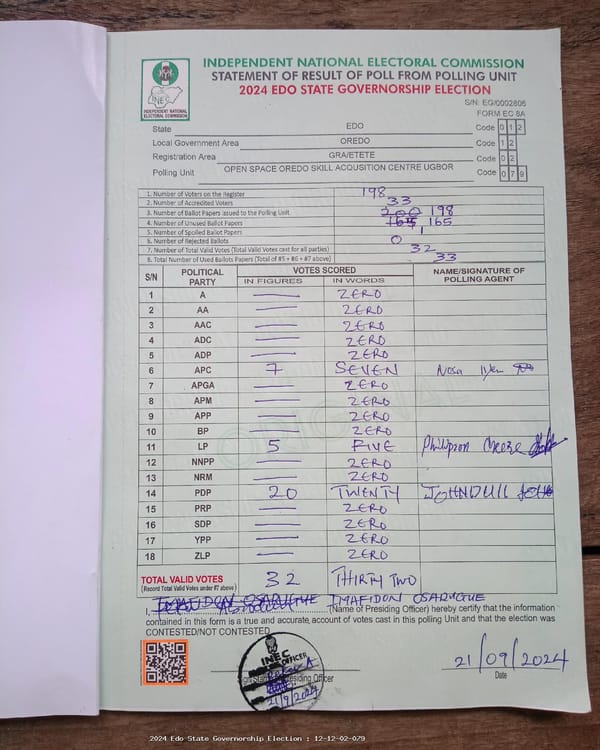 INDEPENDENT NATIONAL ELECTORAL COMMISSION
STATEMENT OF RESULT OF POLL FROM POLLING UNIT
2024 EDO STATE GOVERNORSHIP ELECTION
INEC
INDEPENDENT NATIONAL ELECTORAL COMMISSION
S/N: EG/0002806
FORM EC 8A
State EDO Code 0 1 2
Local Government Area OREDO Code 1 2
Registration Area GRA/ETETE Code 0 2
Polling Unit OPEN SPACE OREDO SKILL ACQUSITION CENTRE UGBOR Code 0 7 9
1. Number of Voters on the Register 198
2. Number of Accredited Voters 33
3. Number of Ballot Papers Issued to the Polling Unit 200 198
4. Number of Unused Ballot Papers 165 165
5. Number of Spoiled Ballot Papers 1
6. Number of Rejected Ballots 0
7. Number of Total Valid Votes (Total Valid Votes cast for all parties) 32
8. Total Number of Used Ballots Papers (Total of #5 + #6 + #7 above) 33
S/N POLITICAL PARTY VOTES SCORED NAME/SIGNATURE OF POLLING AGENT
IN FIGURES IN WORDS
1 A — ZERO
2 AA — ZERO
3 AAC — ZERO
4 ADC — ZERO
5 ADP — ZERO
6 APC 7 SEVEN Nosa
7 APGA — ZERO
8 APM — ZERO
9 APP — ZERO
10 BP — ZERO
11 LP 5 FIVE
12 NNPP — ZERO
13 NRM — ZERO
14 PDP 20 TWENTY JOHNDULL
15 PRP — ZERO
16 SDP — ZERO
17 YPP — ZERO
18 ZLP — ZERO
TOTAL VALID VOTES 32 THIRTY TWO
(Record Total Valid Votes under #7 above)
I, IMAFIDON OSARUGUE (Name of Presiding Officer) hereby certify that the information
contained in this form is a true and accurate account of votes cast in this polling Unit and that the election was
CONTESTED/NOT CONTESTED
INEC
OFFICER
21/9/2024
Presiding Officer
21/09/2024
Date
2024 Edo State Governorship Election : 12-12-02-079